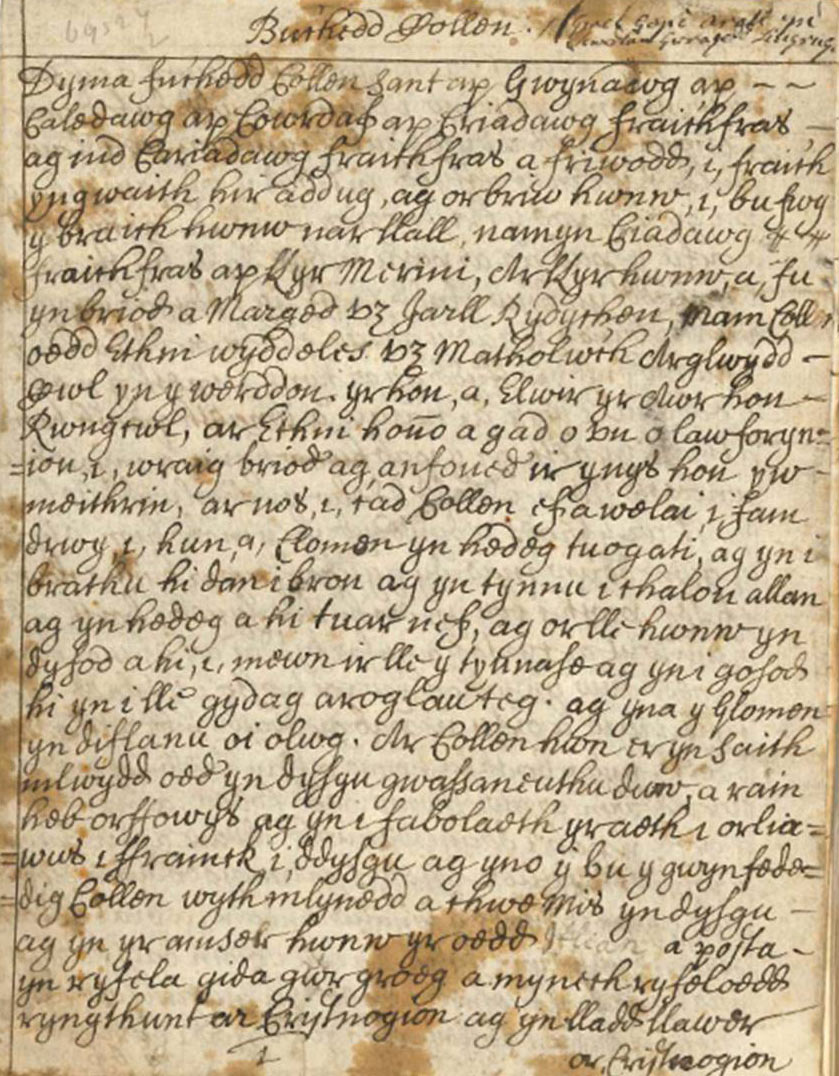 Buchedd Collen.
Dyma fuchedd Collen sant ap Gwynawg ap
Caledawg ap Cowrdaf ap Criadawg fraichfras
ag ind Cariadawg fraichfras a friwodd, i, fraich
yngwaith hir addug, ag or briw hwnw, i, bu fwy
y braich hwnw nar llall, namyn Ciadawg
fraichfras ap llyr Merini, Ar llyr hwnw, a, fu
yn briod a Marged vz Jarll Rydychen, Mam Coll
oedd Ethni wyddeles vz Matholwch Arglwydd
Cwl yn y werddon. yr hon, a, Elwir yr Awr hon
Rwngcwl, ar Ethni hono a gad o vn o law foryn=
=ion, i, wraig briod ag anfoned ir ynys hon yw
meithrin, ar nos, i, cad Collen efa welai i fam
drwy, i, hun, a, Clomen yn hedeg tuogati, ag yn i
brathu hi dan i bron ag yn tynnu i chalon allan
ag yn hedeg a hi tuar nef, ag or lle hwnw yn
dyfod a hi, i, mewn ir lle y tynnase ag yn i gosod
hi yn i lle gydag aroglau teg. ag yna y Glomen
yn diflanu oi olwg. Ar Collen hwn er yn saith
mlwydd oed yn dysgu gwassaneuthu duw, a rain
heb orffowys ag yn i fabolaeth yr aeth i orlia=
=wns i ffrainck, i, ddysgu ag yno y bu y gwynfede=
=dig Collen wyth mlynedd a thwe mis yn dysgu
ag yn yr amser hwnw yr oedd a posta
yn ryfela gida gwr groeg a mynech ryfeloedd
ryngthunt ar Cristnogion ag yn lladd llawer
1 or Cristnogion